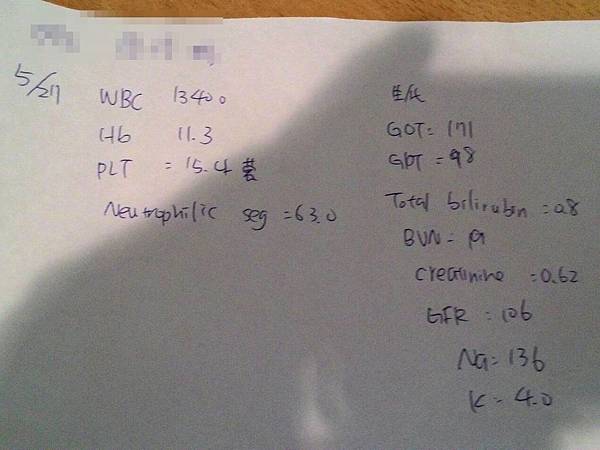 5/27
WBC 13400
Hb 11.3
PLT = 15.4萬
Neutrophilic seg = 63.0
生化
GOT = 171
GPT = 98
Total bilirubin = 0.8
BUN = 19
creatinine = 0.62
GFR = 106
Na = 136
K = 4.0